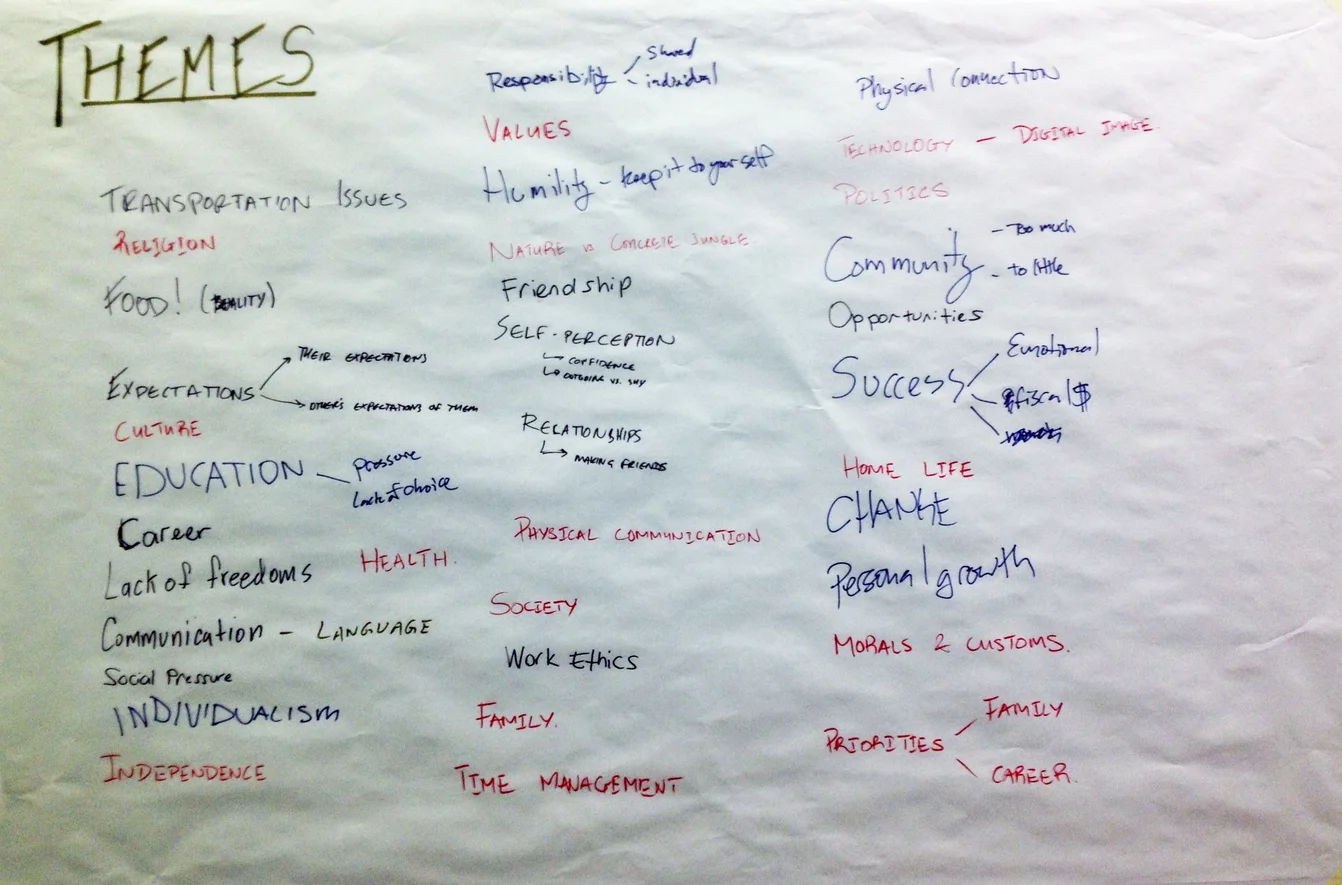 THEMES
TRANSPORTATION ISSUES
RELIGION
FOOD! (
EXPECTATIONS
THEIR EXPECTATIONS
OTHER'S EXPECTATIONS OF THEM
CULTURE
EDUCATION
Pressure
Lack of choice
Career
Lack of freedoms
HEALTH.
Communication – LANGUAGE
Social Pressure
INDIVIDUALISM
INDEPENDENCE
Responsibility
Shared
individual
VALUES
Humility – keep it to yourself
NATURE vs CONCRETE JUNGLE
Friendship
SELF-PERCEPTION
CONFIDENCE
OUTGOING VS. SHY
RELATIONSHIPS
MAKING FRIENDS
PHYSICAL COMMUNICATION
SOCIETY
Work Ethics
FAMILY.
TIME MANAGEMENT
Physical Connection
TECHNOLOGY – DIGITAL IMAGE
POLITICS
Community
– Too much
– to little
Opportunities
SUCCESS
Emotional
fiscal $
HOME LIFE
CHANGE
Personal growth
MORALS & CUSTOMS.
PRIORITIES
FAMILY
CAREER.